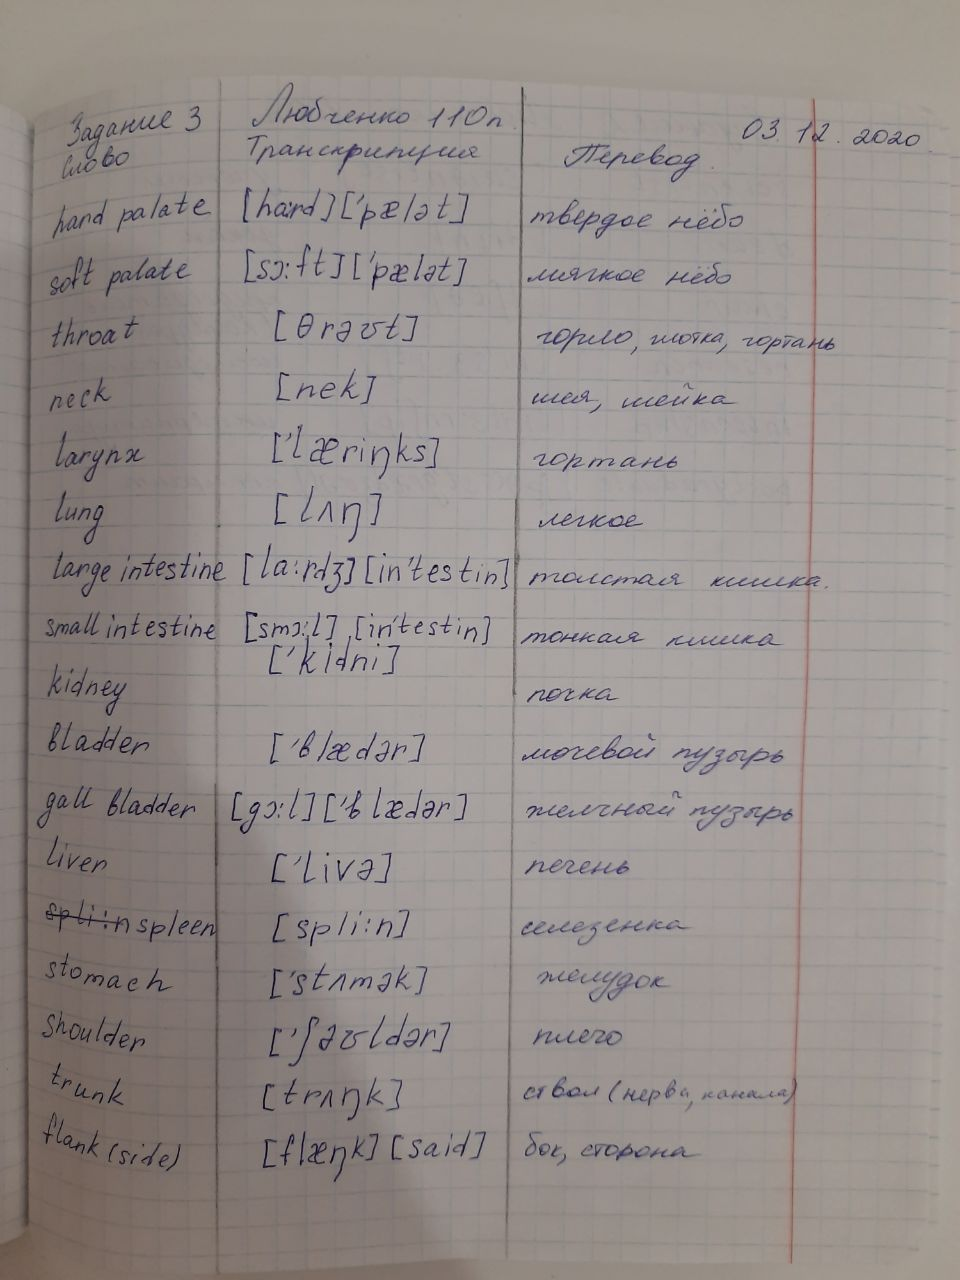 Задание 3 Любченко 110п 03.12.2020
Слово Транскрипция Перевод.
hard palate [ha:rd]['pælət] твердое нёбо
soft palate [sɔ:ft]['pælət] мягкое нёбо
throat [θrəʊt] горло, глотка, гортань
neck [nek] шея, шейка
larynx ['læriŋks] гортань
lung [lʌŋ] легкое
large intestine [la:rdʒ][in'testin] толстая кишка.
small intestine [smɔ:l] [in'testin] тонкая кишка
kidney ['kidni] почка
bladder ['blædər] мочевой пузырь
gall bladder [gɔ:l]['blædər] желчный пузырь
liver ['livə] печень
spli:n spleen [spli:n] селезенка
stomach ['stʌmək] желудок
shoulder ['ʃəʊldər] плечо
trunk [trʌŋk] ствол (нерва, канала)
flank (side) [flæŋk] [said] бок, сторона